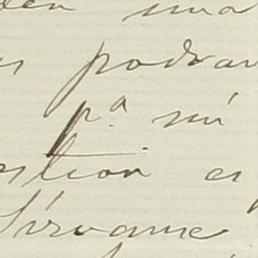 den una
podran
pª mi
estion es
Sirvame